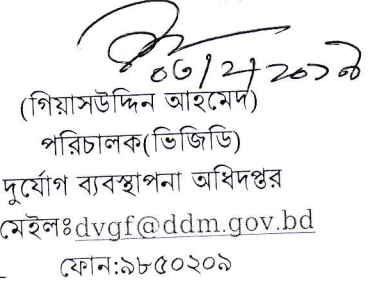 ০৩/২/২০১৯
(গিয়াসউদ্দিন আহমেদ)
পরিচালক(ভিজিডি)
দুর্যোগ ব্যবস্থাপনা অধিদপ্তর
মেইলঃdvgf@ddm.gov.bd
ফোন:৯৮৫০২০৯